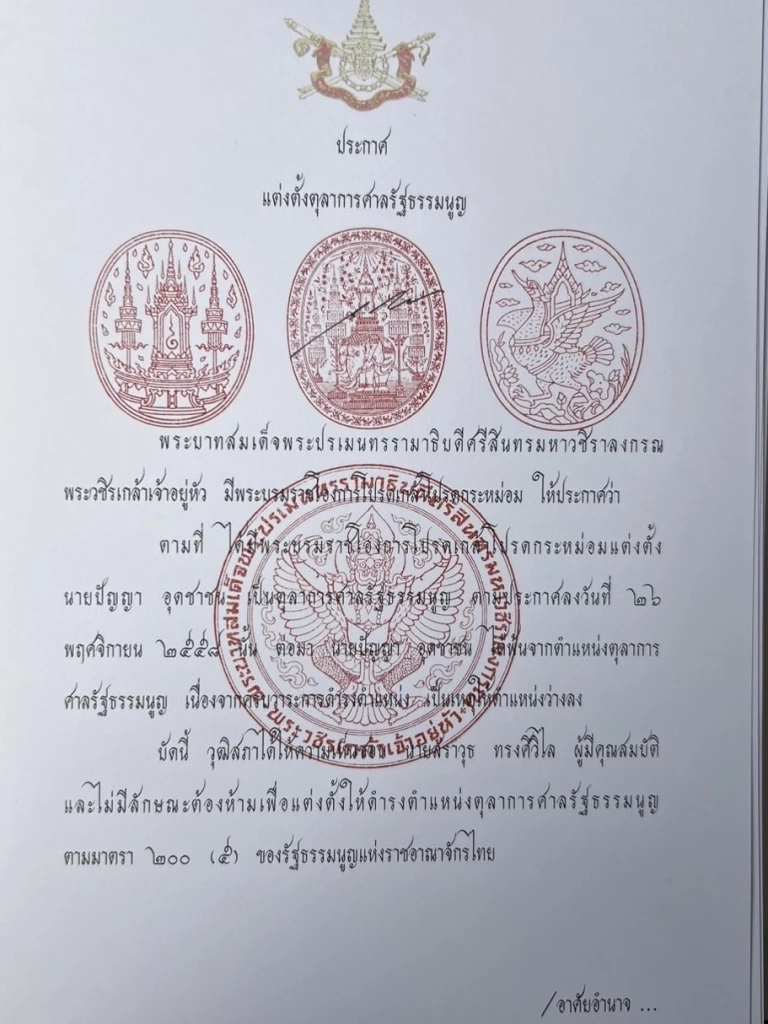 ประกาศ
แต่งตั้งตุลาการศาลรัฐธรรมนูญ
พระบาทสมเด็จพระปรเมนทรรามาธิบดีศรีสินทรมหาวชิราลงกรณ
พระวชิรเกล้าเจ้าอยู่หัว มีพระบรมราชโองการโปรดเกล้าโปรดกระหม่อม ให้ประกาศว่า
ตามที่ ได้มีพระบรมราชโองการโปรดเกล้าโปรดกระหม่อมแต่งตั้ง
นายปัญญา อุดชาชน เป็นตุลาการศาลรัฐธรรมนูญ ตามประกาศลงวันที่ ๒๖
พฤศจิกายน ๒๕๕๘ นั้น ต่อมา นายปัญญา อุดชาชน ได้พ้นจากตำแหน่งตุลาการ
ศาลรัฐธรรมนูญ เนื่องจากครบวาระการดำรงตำแหน่ง เป็นเหตุให้ตำแหน่งว่างลง
บัดนี้ วุฒิสภาได้ให้ความเห็นชอบ นายสราวุธ ทรงศิวิไล ผู้มีคุณสมบัติ
และไม่มีลักษณะต้องห้ามเพื่อแต่งตั้งให้ดำรงตำแหน่งตุลาการศาลรัฐธรรมนูญ
ตามมาตรา ๒๐๐ (๕) ของรัฐธรรมนูญแห่งราชอาณาจักรไทย
/อาศัยอำนาจ ...
พระบาทสมเด็จพระปรเมนทรรามาธิบดีศรีสินทรมหาวชิราลงกรณ
พระวชิรเกล้าเจ้าอยู่หัว